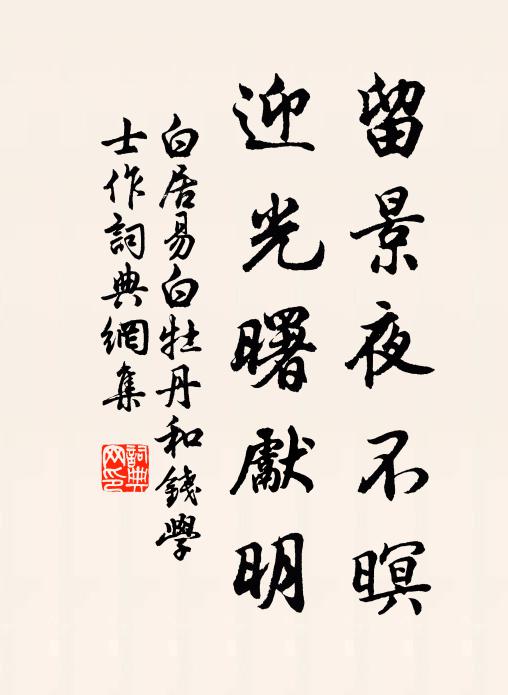 留景夜不暝
迎光曙獻明
白居易白牡丹和錢學
士作詞典網集
詞典網印